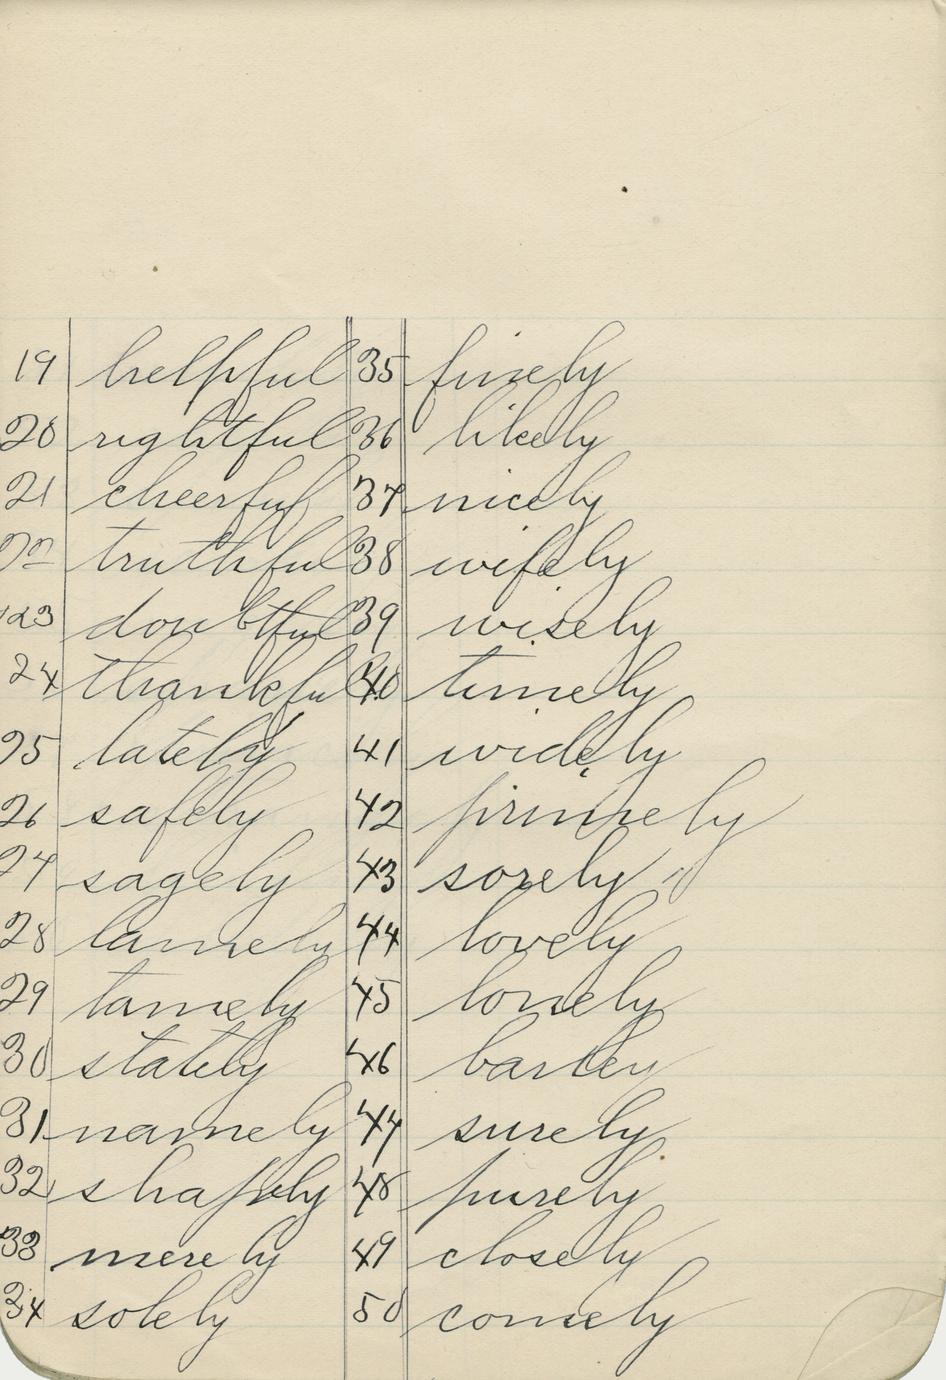 19 helpful
20 rightful
21 cheerful
22 truthful
23 doubtful
24 thankful
25 lately
26 safely
27 sagely
28 lamely
29 tamely
30 stately
31 namely
32 shapely
33 merely
34 solely
35 finely
36 likely
37 nicely
38 wifely
39 wisely
40 timely
41 widely
42 primely
43 sorely
44 lovely
45 lonely
46 barley
47 surely
48 purely
49 closely
50 comely